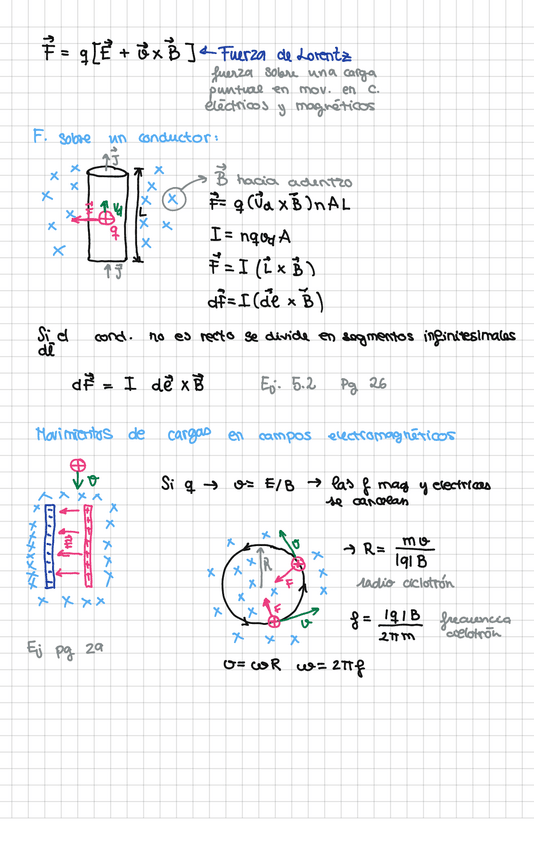 F⃗ = q[E⃗ + v⃗ x B⃗] ← Fuerza de Lorentz
fuerza sobre una carga
puntual en mov. en C.
eléctricos y magnéticos
F. sobre un conductor:
J⃗
B⃗ hacia adentro
F⃗ = q(V⃗d x B⃗)nAL
F⃗ Vd L
q
I = nqvdA
F⃗ = I(L⃗ x B⃗)
J⃗
dF⃗ = I(dl⃗ x B⃗)
Si el cond. no es recto se divide en segmentos infinitesimales
dl⃗
dF⃗ = I dl⃗ x B⃗ Ej. 5.2 Pg 26
Movimientos de cargas en campos electromagnéticos
v
Si q → v = E/B → las f mag y electricas
se cancelan
E⃗
v
→ R = mv / |q|B
R
F
radio ciclotrón
F
v
f = |q|B / 2πm frecuencia
ciclotrón
Ej pg 29
v = ωR ω = 2πf